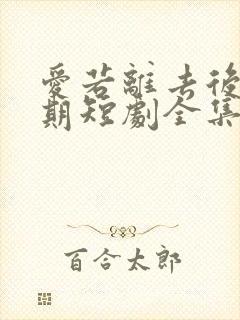 愛若離去後
期短劇全集
百合太郎